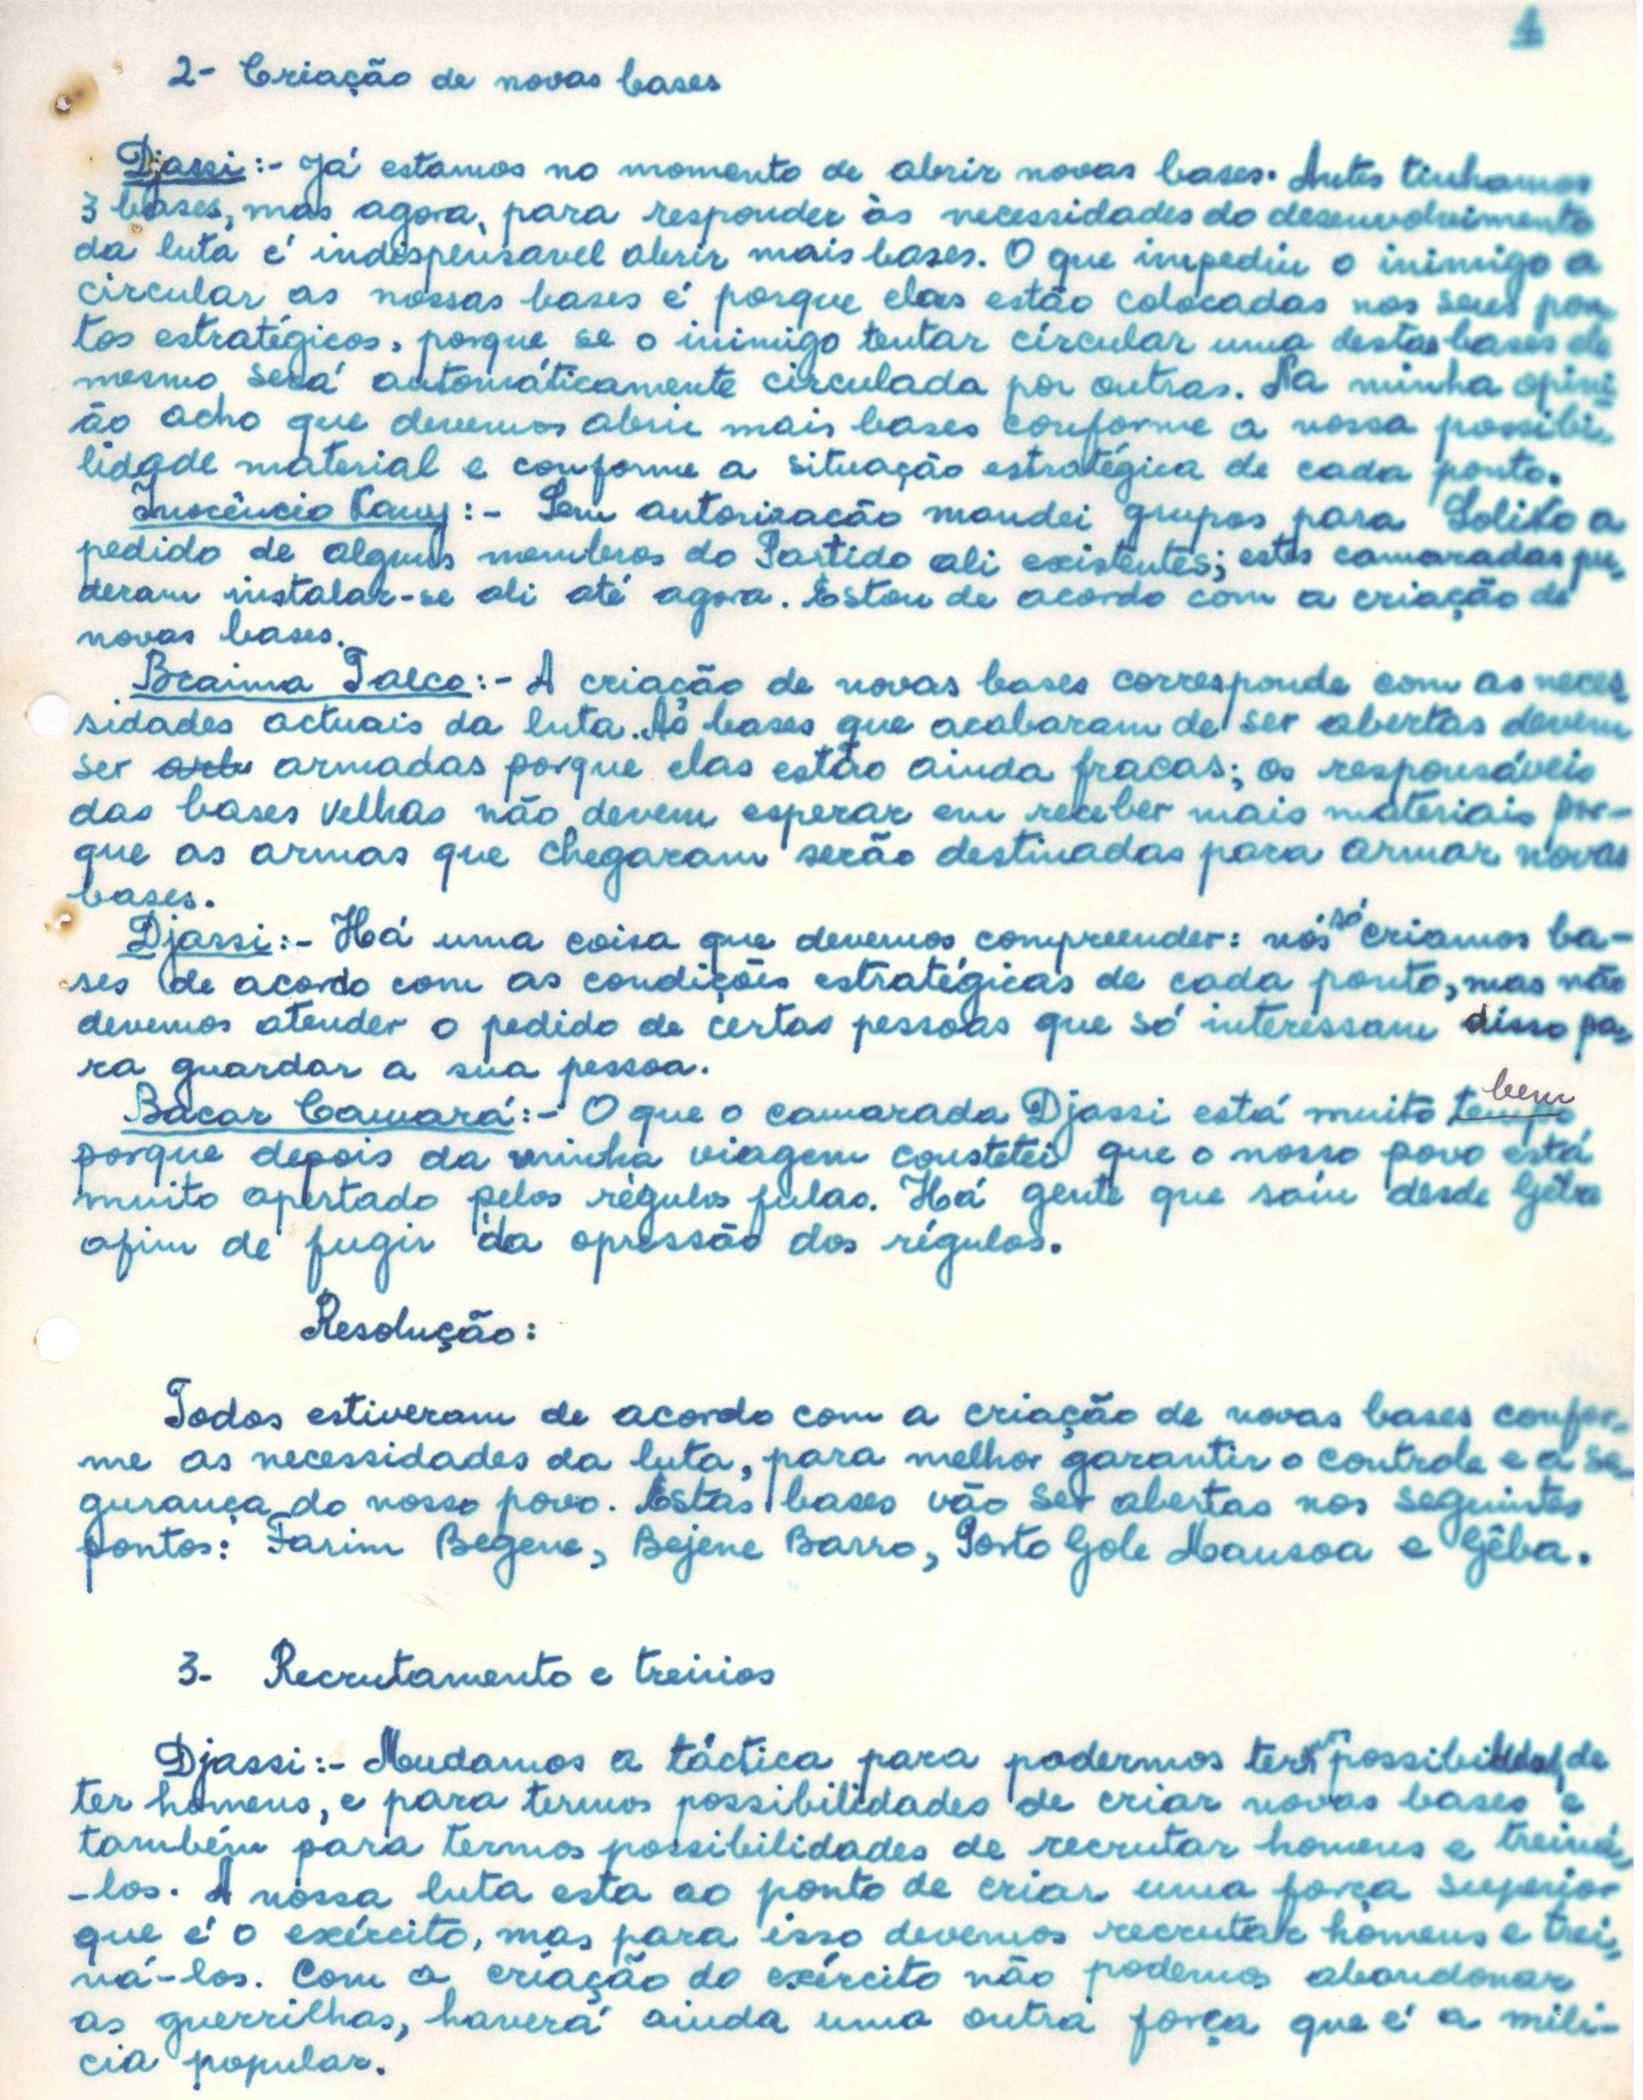 4
2- Criação de novas bases
Djassi:- Já estamos no momento de abrir novas bases. Antes tinhamos
3 bases, mas agora, para responder às necessidades do desenvolvimento
da luta é indispensavel abrir mais bases. O que impediu o inimigo a
circular as nossas bases é porque elas estão colocadas nos seus pon-
tos estratégicos, porque se o inimigo tentar circular uma destas bases ele
mesmo será automáticamente circulada por outras. Na minha opini-
ão acho que devemos abrir mais bases conforme a nossa possibi-
lidade material e conforme a situação estratégica de cada ponto.
Inocêncio Kany:- Sem autorização mandei grupos para Soliko a
pedido de alguns membros do Partido ali existentes; estes camaradas pu-
deram instalar-se ali até agora. Estou de acordo com a criação de
novas bases.
Braima Talco:- A criação de novas bases corresponde com as neces
sidades actuais da luta. As bases que acabaram de ser abertas devem
ser armadas porque elas estão ainda fracas; os responsáveis
das bases velhas não devem esperar em receber mais materiais por-
que as armas que chegaram serão destinadas para armar novas
bases.
Djassi:- Há uma coisa que devemos compreender: nós só criamos ba-
ses de acordo com as condições estratégicas de cada ponto, mas não
devemos atender o pedido de certas pessoas que só interessam disso pa-
ra guardar a sua pessoa.
Bacar Camará:- O que o camarada Djassi está muito tempo bem
porque depois da minha viagem constetei que o nosso povo está
muito apertado pelos régulos fulas. Há gente que saíu desde Gêba
afim de fugir da opressão dos régulos.
Resolução:
Todos estiveram de acordo com a criação de novas bases confor-
me as necessidades da luta, para melhor garantir o controle e a se-
gurança do nosso povo. Estas bases vão ser abertas nos seguintes
pontos: Farim Begene, Bejene Barro, Porto Gole Mansoa e Gêba.
3- Recrutamento e treinos
Djassi:- Mudamos a táctica para podermos ter possibilidad, de
ter homens, e para termos possibilidades de criar novas bases e
também para termos possibilidades de recrutar homens e treiná-
-los. A nossa luta esta ao ponto de criar uma força superior
que é o exército, mas para isso devemos recrutar homens e trei-
ná-los. Com a criação do exército não podemos abandonar
as guerrilhas, haverá ainda uma outra força que é a milí-
cia popular.